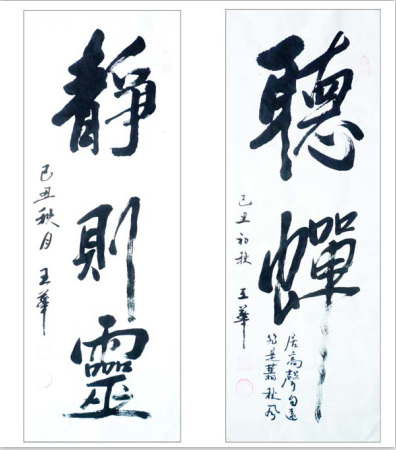 靜則靈
己丑秋月 王華
聽蟬
居高聲自遠
非是藉秋风
己丑初秋 王華